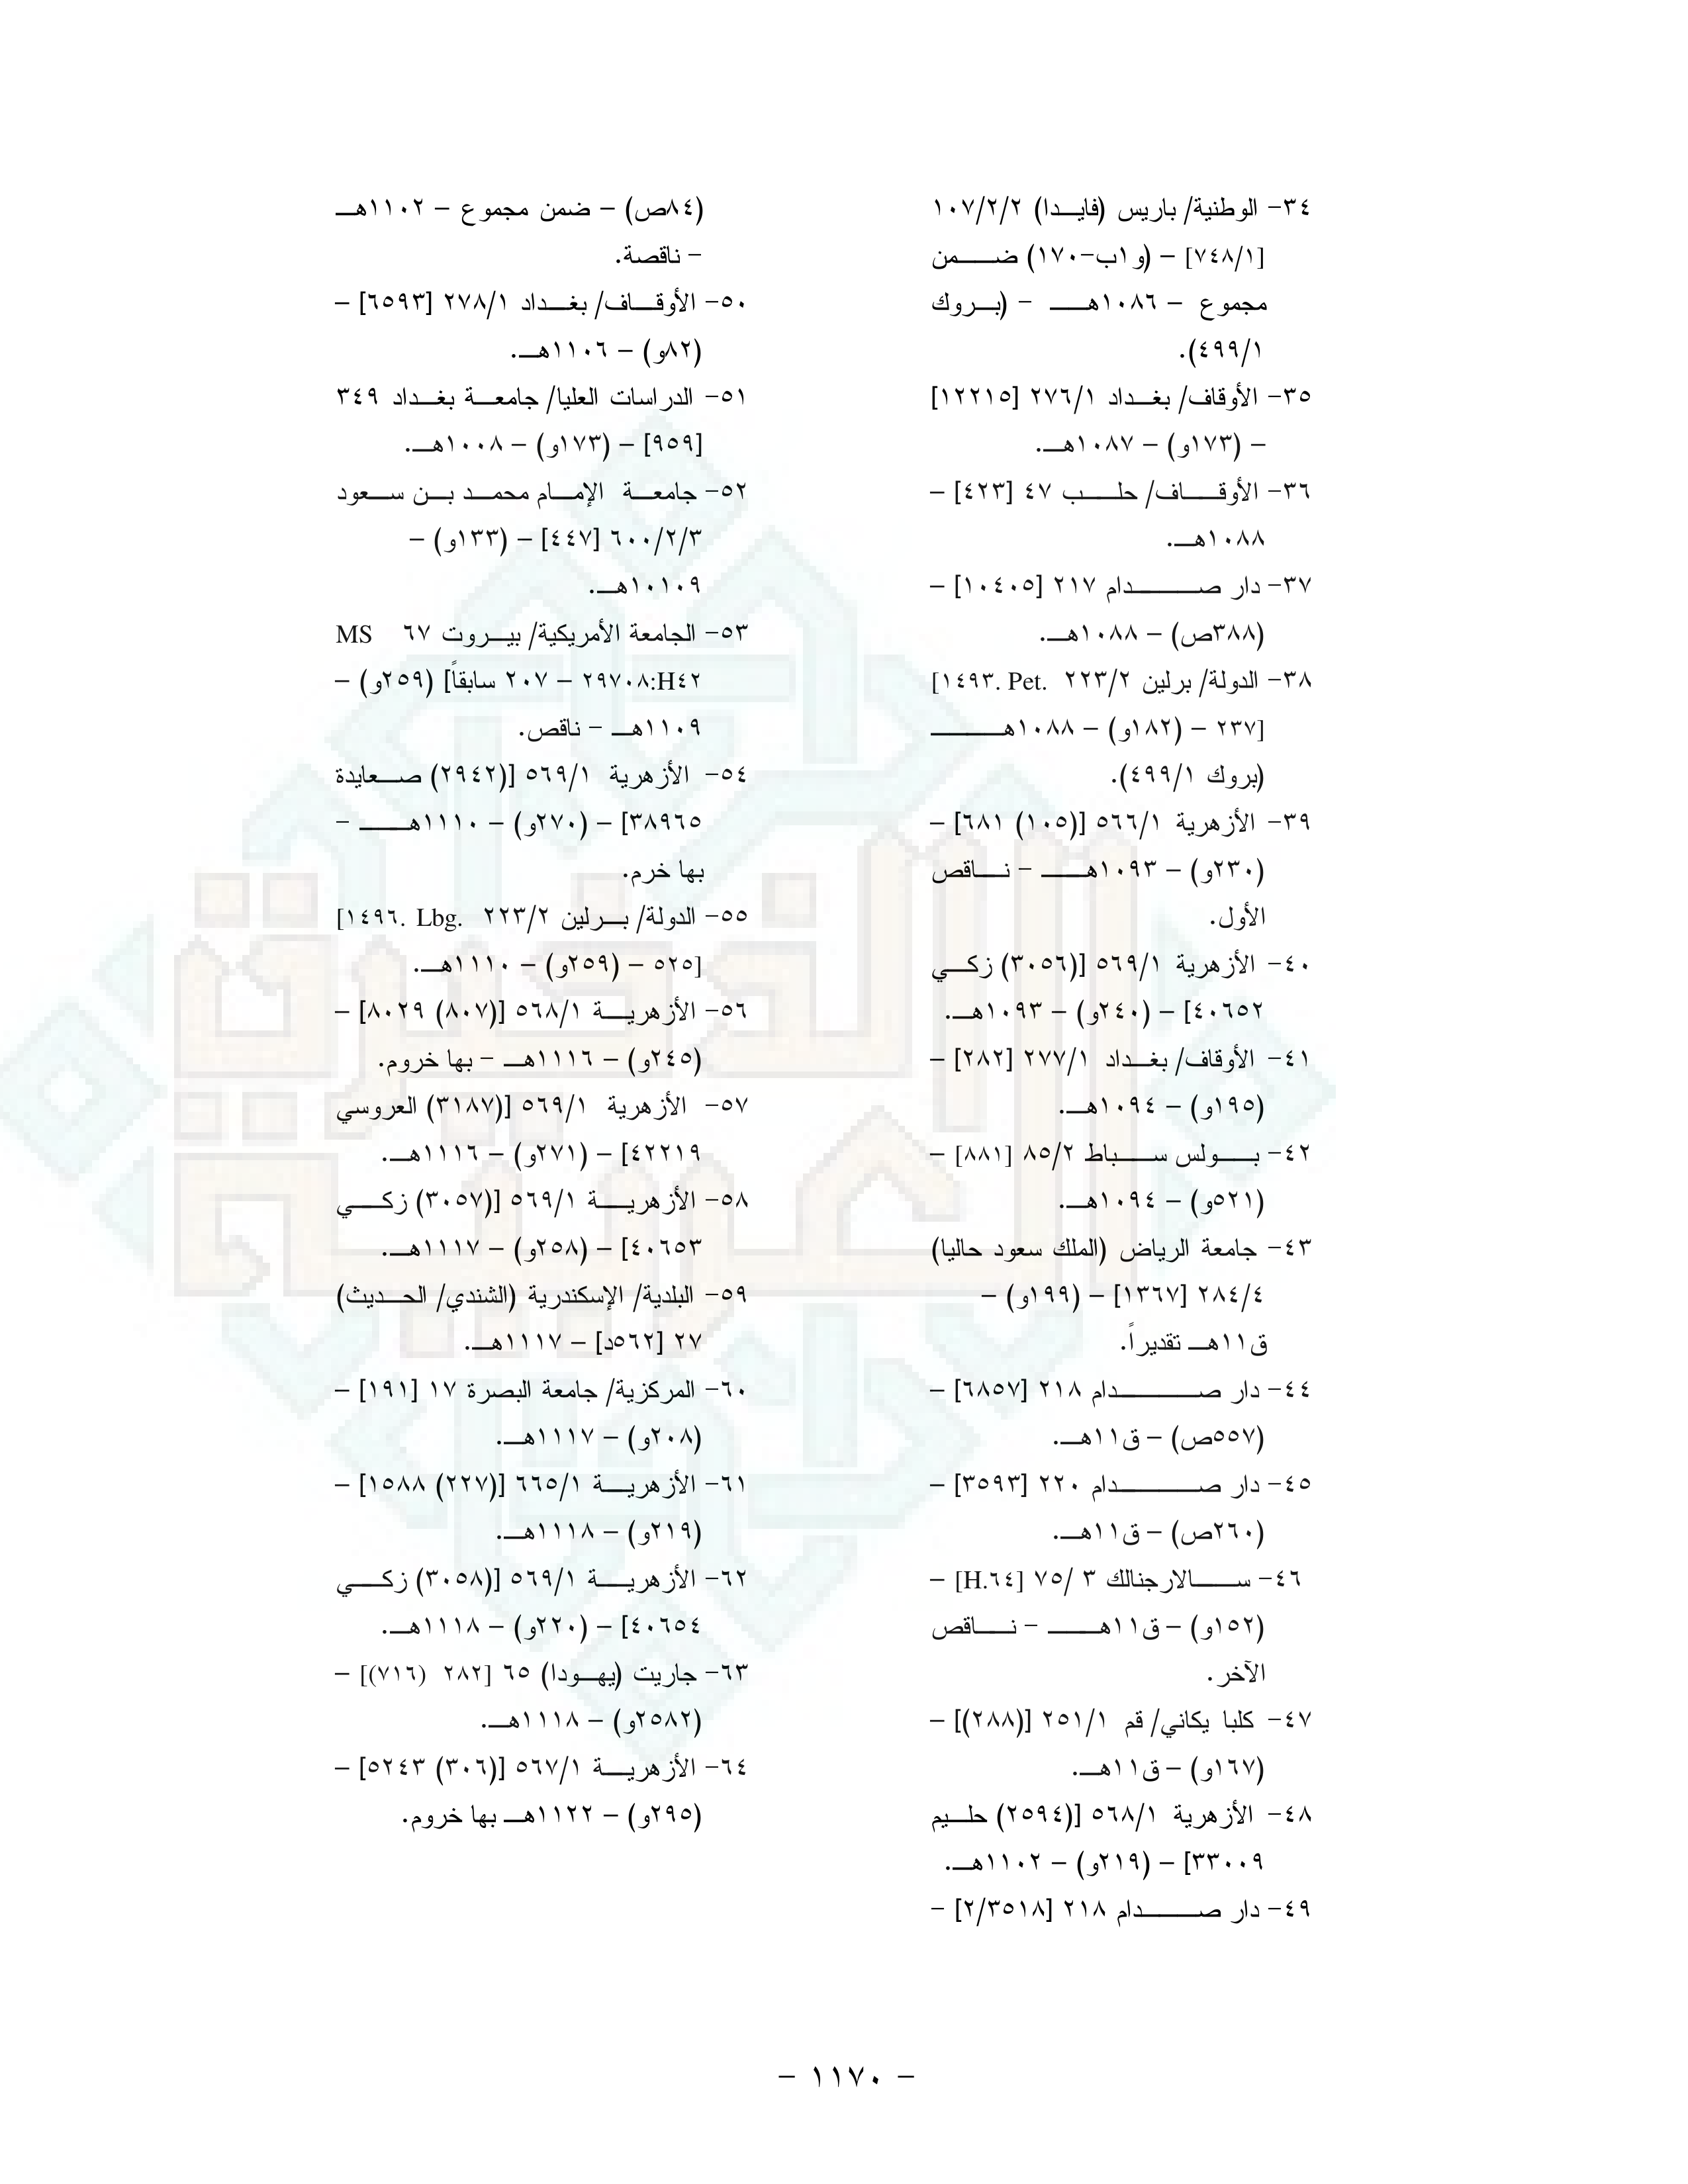 ٣٤- الوطنية/ باريس (فايدا) ١٠٧/٢/٢
[٧٤٨/١] – (و١ب-١٧٠) ضمن
مجموع – ١٠٨٦هـ - (بروك
٤٩٩/١).
٣٥- الأوقاف/ بغداد ٢٧٦/١ [١٢٢١٥]
– (١٧٣و) – ١٠٨٧هـ.
٣٦- الأوقاف/ حلب ٤٧ [٤٢٣] –
١٠٨٨هـ.
٣٧- دار صدام ٢١٧ [١٠٤٠٥] –
(٣٨٨ص) – ١٠٨٨هـ.
٣٨- الدولة/ برلين ٢٢٣/٢ [١٤٩٣. Pet.
٢٣٧] – (١٨٢و) – ١٠٨٨هـ
(بروك ٤٩٩/١).
٣٩- الأزهرية ٥٦٦/١ [(١٠٥) ٦٨١] –
(٢٣٠و) – ١٠٩٣هـ - ناقص
الأول.
٤٠- الأزهرية ٥٦٩/١ [(٣٠٥٦) زكي
٤٠٦٥٢] – (٢٤٠و) – ١٠٩٣هـ.
٤١- الأوقاف/ بغداد ٢٧٧/١ [٢٨٢] –
(١٩٥و) – ١٠٩٤هـ.
٤٢- بولس سباط ٨٥/٢ [٨٨١] –
(٥٢١و) – ١٠٩٤هـ.
٤٣- جامعة الرياض (الملك سعود حاليا)
٢٨٤/٤ [١٣٦٧] – (١٩٩و) –
ق١١هـ تقديراً.
٤٤- دار صدام ٢١٨ [٦٨٥٧] –
(٥٥٧ص) – ق١١هـ.
٤٥- دار صدام ٢٢٠ [٣٥٩٣] –
(٢٦٠ص) – ق١١هـ.
٤٦- سالارجنالك ٣ /٧٥ [H.٦٤] –
(١٥٢و) – ق١١هـ - ناقص
الآخر.
٤٧- كلبا يكاني/ قم ٢٥١/١ [(٢٨٨)] –
(١٦٧و) – ق١١هـ.
٤٨- الأزهرية ٥٦٨/١ [(٢٥٩٤) حليم
٣٣٠٠٩] – (٢١٩و) – ١١٠٢هـ.
٤٩- دار صدام ٢١٨ [٢/٣٥١٨] –
(٨٤ص) – ضمن مجموع – ١١٠٢هـ
- ناقصة.
٥٠- الأوقاف/ بغداد ٢٧٨/١ [٦٥٩٣] –
(٨٢و) – ١١٠٦هـ.
٥١- الدراسات العليا/ جامعة بغداد ٣٤٩
[٩٥٩] – (١٧٣و) – ١٠٠٨هـ.
٥٢- جامعة الإمام محمد بن سعود
٦٠٠/٢/٣ [٤٤٧] – (١٣٣و) –
١٠١٠٩هـ.
٥٣- الجامعة الأمريكية/ بيروت ٦٧ MS
٢٩٧٠٨:H٤٢ – ٢٠٧ سابقاً] (٢٥٩و) –
١١٠٩هـ - ناقص.
٥٤- الأزهرية ٥٦٩/١ [(٢٩٤٢) صعايدة
٣٨٩٦٥] – (٢٧٠و) – ١١١٠هـ -
بها خرم.
٥٥- الدولة/ برلين ٢٢٣/٢ [١٤٩٦. Lbg.
٥٢٥] – (٢٥٩و) – ١١١٠هـ.
٥٦- الأزهرية ٥٦٨/١ [(٨٠٧) ٨٠٢٩] –
(٢٤٥و) – ١١١٦هـ - بها خروم.
٥٧- الأزهرية ٥٦٩/١ [(٣١٨٧) العروسي
٤٢٢١٩] – (٢٧١و) – ١١١٦هـ.
٥٨- الأزهرية ٥٦٩/١ [(٣٠٥٧) زكي
٤٠٦٥٣] – (٢٥٨و) – ١١١٧هـ.
٥٩- البلدية/ الإسكندرية (الشندي/ الحديث)
٢٧ [٥٦٢د] – ١١١٧هـ.
٦٠- المركزية/ جامعة البصرة ١٧ [١٩١] –
(٢٠٨و) – ١١١٧هـ.
٦١- الأزهرية ٦٦٥/١ [(٢٢٧) ١٥٨٨] –
(٢١٩و) – ١١١٨هـ.
٦٢- الأزهرية ٥٦٩/١ [(٣٠٥٨) زكي
٤٠٦٥٤] – (٢٢٠و) – ١١١٨هـ.
٦٣- جاريت (يهودا) ٦٥ [٢٨٢ (٧١٦)] –
(٢٥٨٢و) – ١١١٨هـ.
٦٤- الأزهرية ٥٦٧/١ [(٣٠٦) ٥٢٤٣] –
(٢٩٥و) – ١١٢٢هـ بها خروم.
- ١١٧٠ -